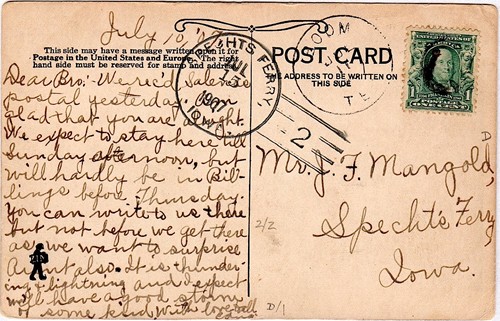 July 10, 
This side may have a message written upon it for
Postage in the United States and Europe. The right
hand side must be reserved for stamp and address.
Dear Bro: We rec'd
postal yesterday
glad that you are alright.
We expect to stay here till
Sunday afternoon, but
will hardly be in Bil-
lings before Thursday.
You can write to us there
but not before we get there
as we want to surprise
Aunt also. It is thunder-
ing & lightning and I expect
we'll have a good storm
of some kind. With love all
SPECHTS FERRY
JUL
13
1907
IOWA
2
POST CARD
THE ADDRESS TO BE WRITTEN ON
THIS SIDE
1
Mr. J. F. Mangold,
Specht's Ferry
Iowa.
2/2
D/1
D